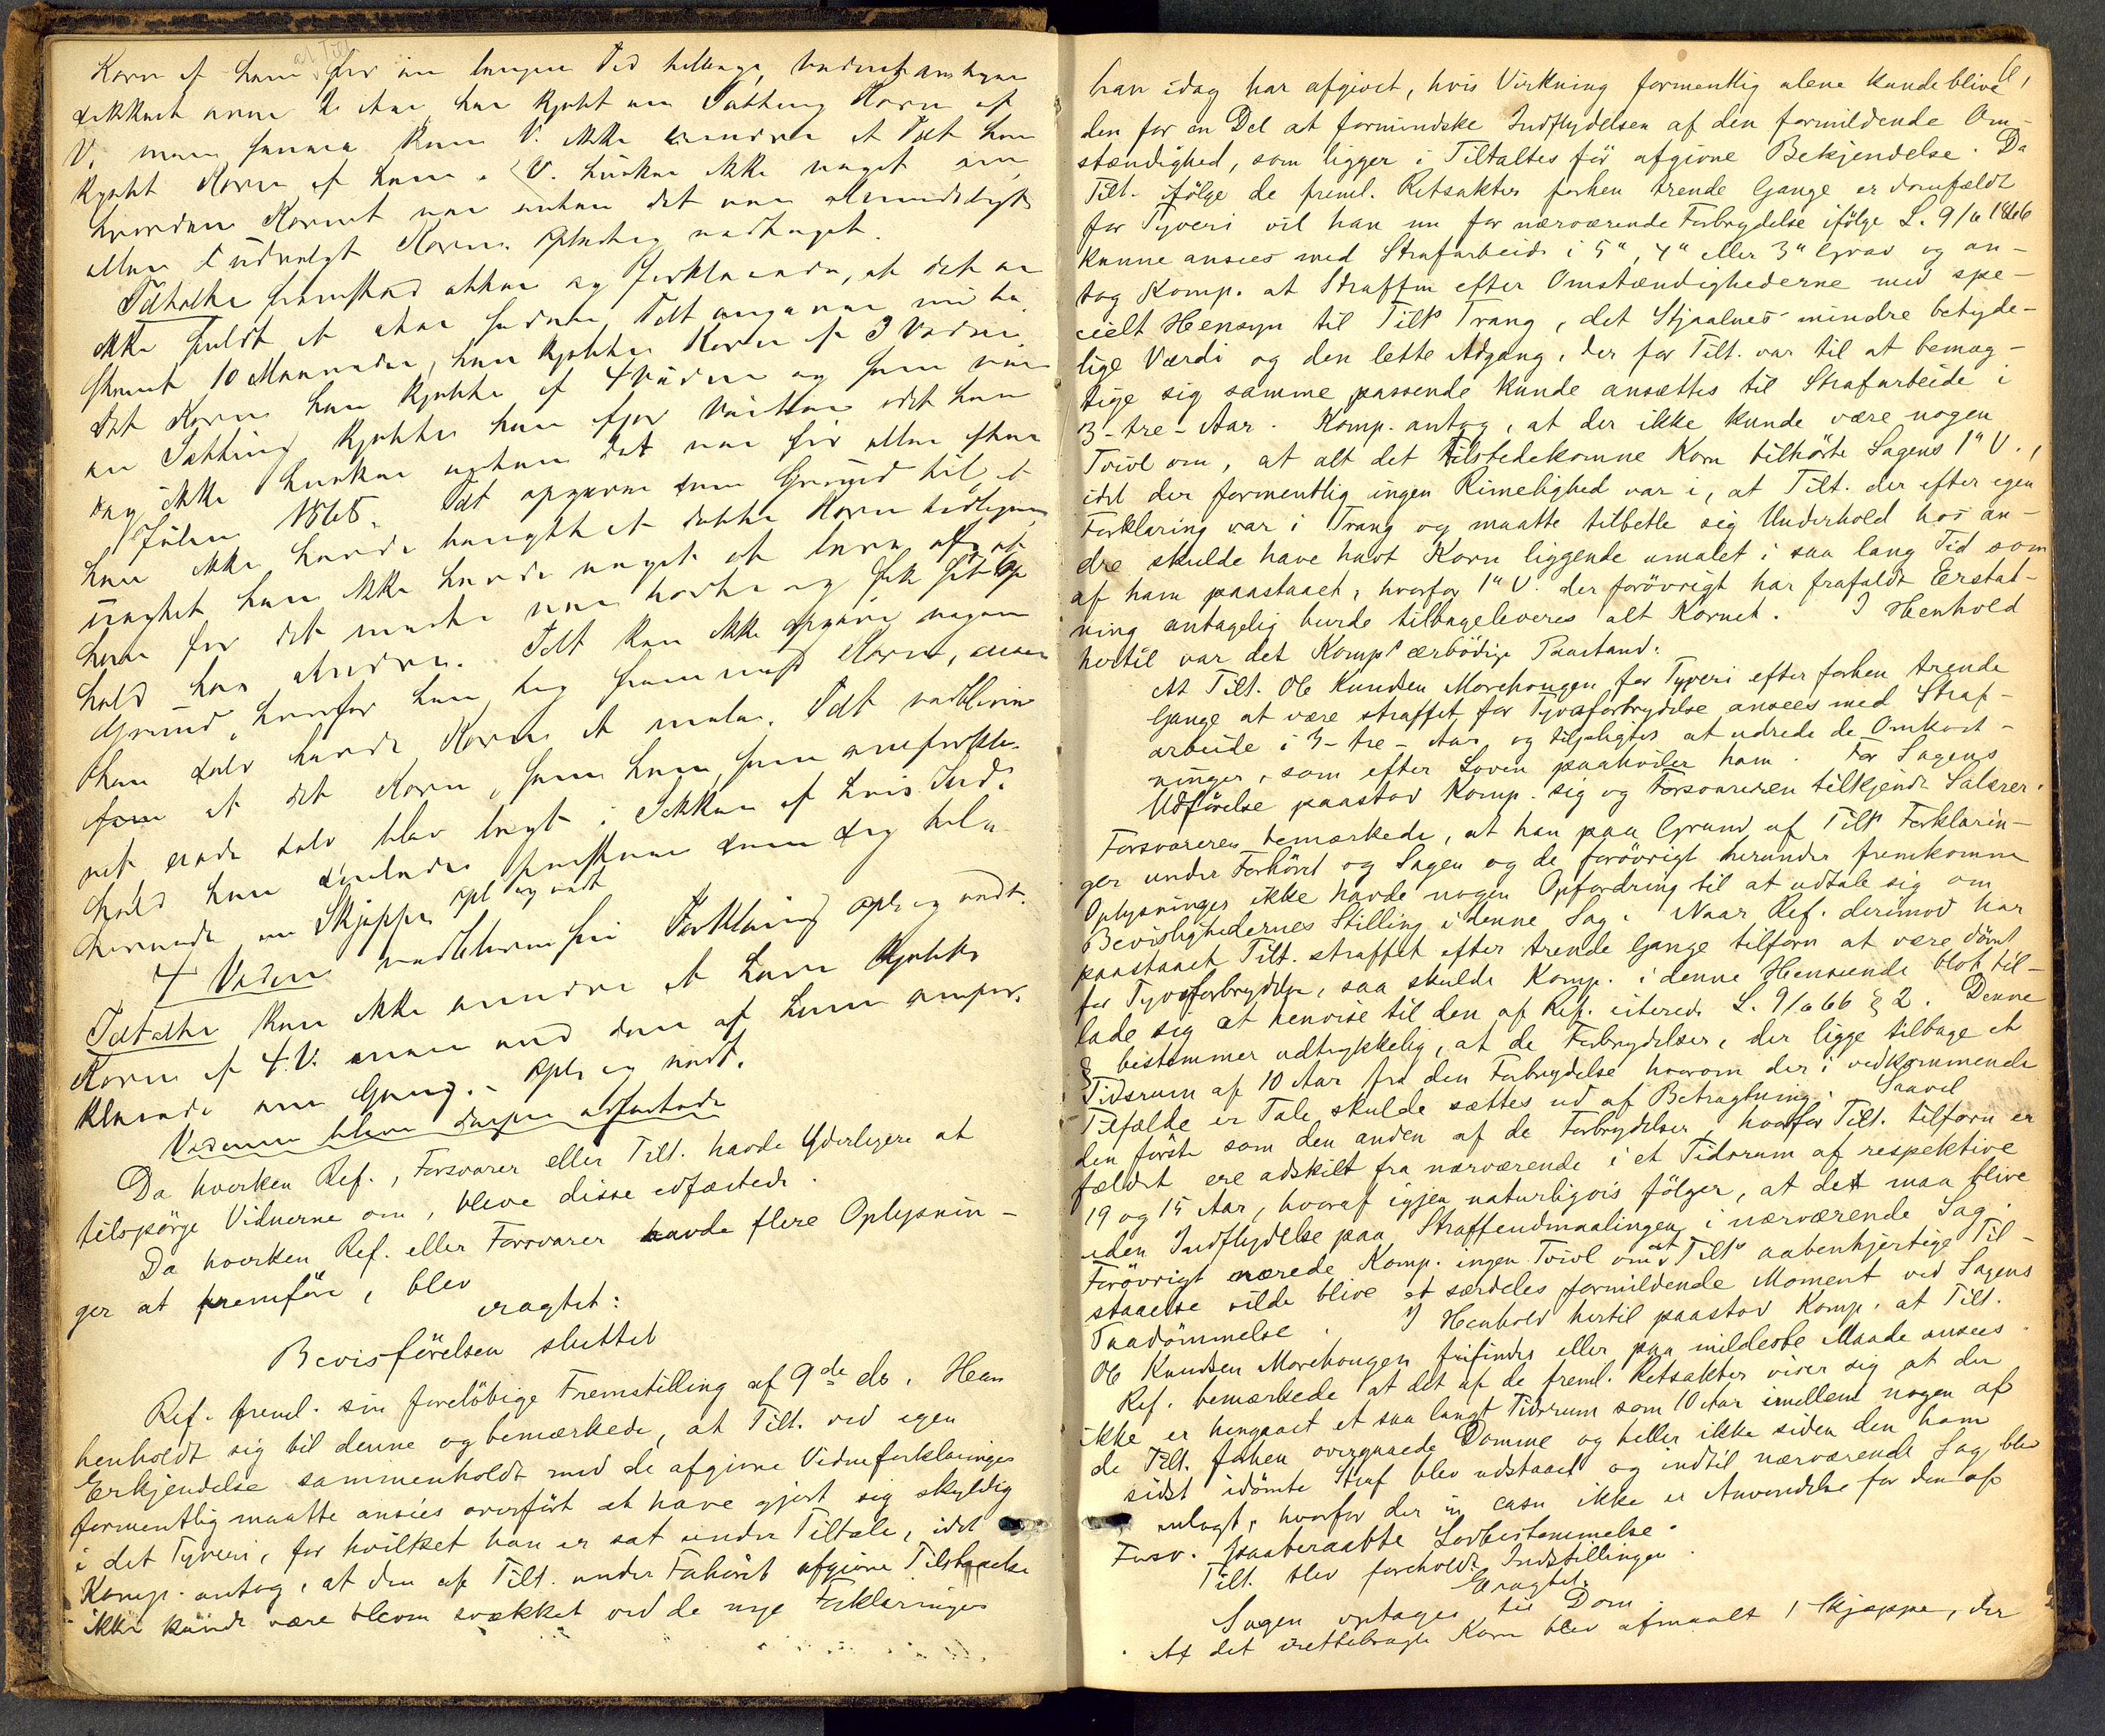 Korn af ham for en længere Tid tilbage,
V. men kan V. ikke erindre at Tilt. har
kjøbt Korn af ham. V. husker ikke noget om
hvordan Kornet var enten det var almindeligt
eller udvalgt Korn. Oplæst og vedtaget.
Tiltalte fremstod atter og forklarede, at det er
ikke fuldt et Aar siden Tilt.
10 Maaneder, han kjøbte Korn af 3 Vidne.
Det Korn han kjøbte af 4 Vidne og som var
en Sætting kjøbte han ifjor Vinter idet han
dog ikke husker enten det var før eller efter
Julen 1868. Tilt. opgiver som Grund til at
han ikke havde benyttet dette Korn tidligere
uagtet han ikke havde noget at leve af, at
hold hos Andre. Tilt. kan ikke opgive nogen
Grund, hvorfor han tog fremmed Korn, naar
han selv havde Korn at male. Tilt. vedbliver
at det Korn, som han, som anført
selv blev bragt i Sækken af hvis Ind-
hold han
en Skjeppe opl. og vedt.
4 Vidne vedblev sin Forklaring opl. og vedt.
Tiltalte kan ikke erindre at have kjøbt
Korn af 4. V. mere end den af ham ompro-
klarede ene Gang. - Opl. og vedt.
Vidnerne bleve derpaa edfæstede
Da hverken Ref., Forsvarer eller Tilt. havde Yderligere at
tilspørge Vidnerne om, bleve disse edfæstede.
Da hverken Ref. eller Forsvarer havde flere Oplysnin-
ger at fremføre, blev
eragtet:
Bevisførelsen sluttet
Ref. freml. sin foreløbige Fremstilling af 9de ds. Han
henholdt sig til denne og bemærkede, at Tilt. ved egen
Erkjendelse sammenholdt med de afgivne Vidneforklaringer
formentlig maatte ansees overført at have gjort sig skyldig
i det Tyveri, for hvilket han er sat under Tiltale, idet
Komp. antog, at den af Tilt. under Forhøret afgivne Tilstaaelse
ikke kunde være bleven svækket ved de nye Forklaringer
han idag har afgivet, hvis Virkning formentlig alene kunde blive
den for en Del at formindske Indflydelsen af den formildende Om-
stændighed, som ligger i Tiltaltes før afgivne Bekjendelse. Da
Tilt. ifølge de freml. Retsakter forhen trende Gange er domfældt
for Tyveri vil han nu for nærværende Forbrydelse ifølge L. 9/6 1866
kunne ansees med Strafarbeide i 5", 4" eller 3" Grad og an-
tog Komp. at Straffen efter Omstændighederne med spe-
cielt Hensyn til Tilts Trang, det Stjaalnes mindre betyde-
lige Værdi og den lette Adgang, der for Tilt. var til at bemæg-
tige sig samme passende kunde ansættes til Strafarbeide i
3 - tre - Aar. Komp. antog, at der ikke kunde være nogen
Tvivl om, at alt det tilstedekomne Korn tilhørte Sagens 1" V.,
idet der formentlig ingen Rimelighed var i, at Tilt. der efter egen
Forklaring var i Trang og maatte tilbetle sig Underhold hos an-
dre skulde have havt Korn liggende umalet i saa lang Tid som
af ham paastaaet, hvorfor 1" V. der forøvrigt har frafaldt Erstat-
ning antagelig burde tilbageleveres alt Kornet. I Henhold
hertil var det Komps ærbødige Paastand:
At Tilt. Ole Knudsen Morehougen for Tyveri efter forhen trende
Gange at være straffet for Tyvsforbrydelse ansees med Straf-
arbeide i 3 - tre - Aar og tilpligtes at udrede de Omkost-
ninger, som efter Loven paahviler ham. For Sagens
Udførelse paastod Komp. sig og Forsvareren tilkjendt Salærer.
Forsvareren bemærkede, at han paa Grund af Tilts Forklarin-
ger under Forhøret og Sagen og de forøvrigt herunder fremkomne
Oplysninger ikke havde nogen Opfordring til at udtale sig om
Bevislighedernes Stilling i denne Sag. Naar Ref. derimod har
paastaaet Tilt. straffet efter trende Gange tilforn at være dømt
for Tyvsforbrydelse, saa skulde Komp. i denne Henseende blot til-
lade sig at henvise til den af Ref. citerede L. 9/6 66 § 2. Denne
§ bestemmer udtrykkelig, at de Forbrydelser, der ligge tilbage et
Tidsrum af 10 Aar fra den Forbrydelse hvorom der i vedkommende
Tilfælde er Tale skulde sættes ud af Betragtning. Saavel
den første som den anden af de Forbrydelser, hvorfor Tilt. tilforn er
fældet ere adskilt fra nærværende i et Tidsrum af respektive
19 og 15 Aar, hvoraf igjen naturligvis følger, at det maa blive
uden Indflydelse paa Straffeudmaalingen i nærværende Sag.
Forøvrigt nærede Komp. ingen Tvivl om at Tilts aabenhjertige Til-
staaelse vilde blive et særdeles formildende Moment ved Sagens
Paadømmelse. I Henhold hertil paastod Komp. at Tilt.
Ole Knudsen Morehougen frifindes eller paa mildeste Maade ansees.
Ref. bemærkede at det af de freml. Retsakter viser sig at der
ikke er hengaaet et saa langt Tidsrum som 10 Aar imellem nogen af
de Tilt. forhen overgaaede Domme og heller ikke siden den ham
sidst idømte Straf blev udstaaet og indtil nærværende Sag blev
anlagt, hvorfor der in casu ikke er Anvendelse for den af
Forsv. paaberaabte Lovbestemmelse.
Tilt. blev foreholdt Indstillingen.
Eragtet:
Sagen optages til Dom
Af det iretttebragte Korn blev afmaalt 1 Skjæppe, der